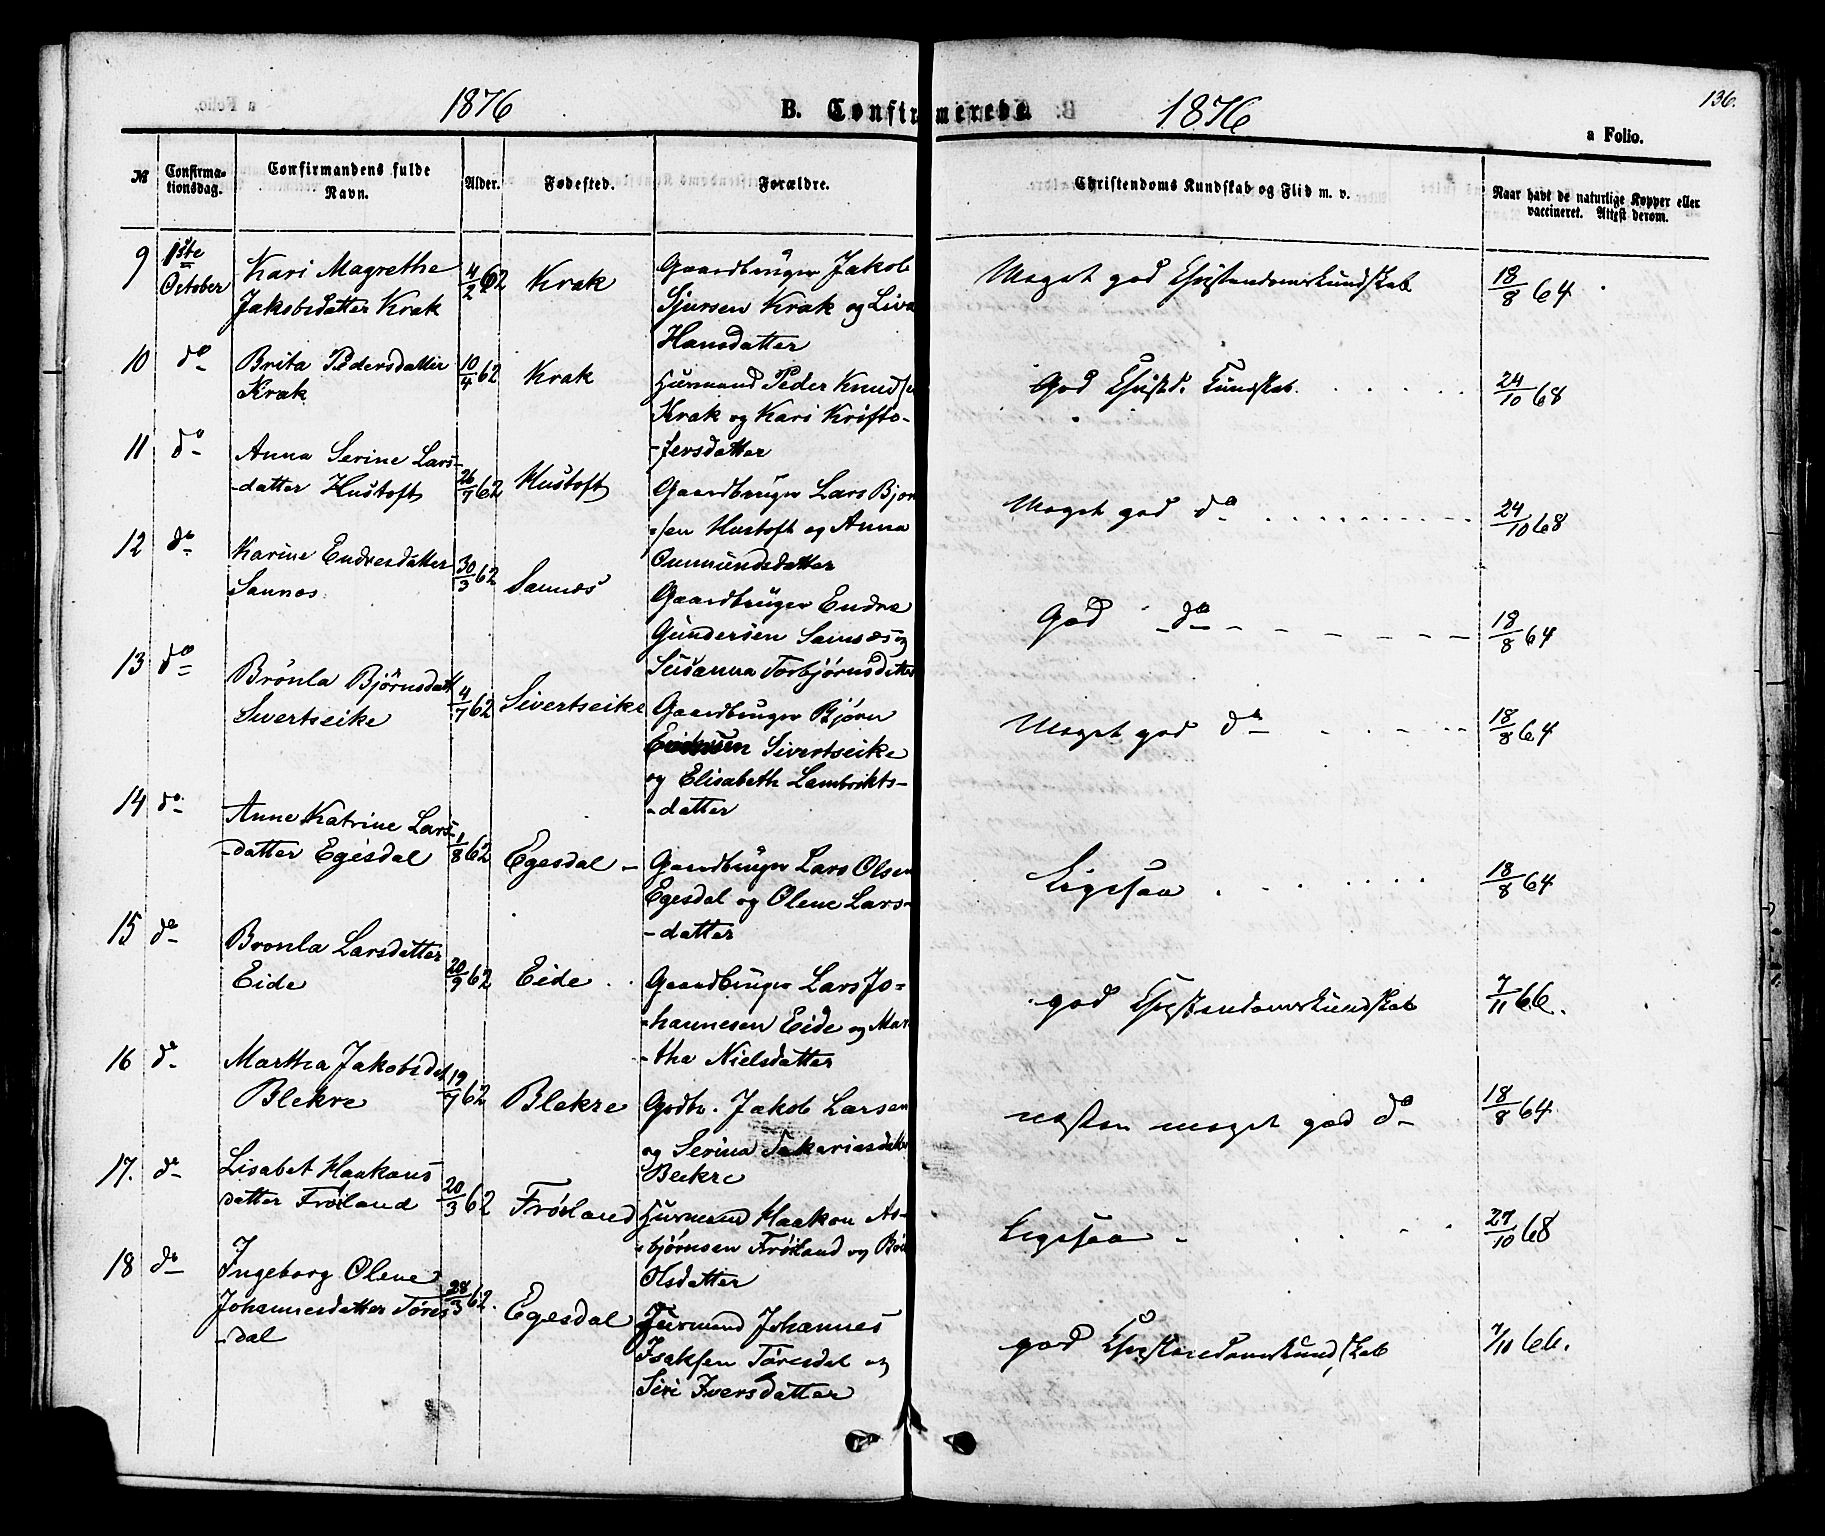 1876 B. Confirmerede 1876 136.
a Folio.
№ Confirma-tionsdag. Confirmandens fulde Navn. Alder. Fødested. Forældre. Christendoms Kundskab og Flid m. v. Naar havt de naturlige Kopper eller vaccineret. Attest derom.
9 1ste October
Kari Magrethe
Jakobsdatter Krak
4/2 62
Krak
Gaardbruger Jakob
Sjursen Krak og Liva
Hansdatter
Meget god Christendomskundskab
18/8 64
10 do
Brita Pedersdatter
Krak
10/4 62
Krak
Huusmand Peder Knudse
Krak og Kari Kristo-
-fersdatter
God Christd. Kundskab
24/10 68
11 do
Anna Serine Lars-
-datter Hustoft
26/7 62
Hustoft
Gaardbruger Lars Bjor
-sen Hustoft og Anna
Ommundsdatter
Meget god do
24/10 68
12 do
Karine Endresdatter
Sannes
30/3 62
Sannes
Gaardbruger Endre
Gundersen Sannes og
Susanna Torbjørnsdatter
God do
18/8 64
13 do
Brønla Bjørnsdatt
Sivertseike
4/7 62
Sivertseike
Gaardbruger Bjørn
Sivertseike
og Elisabeth Lambrikts-
-datter
Meget god do
18/8 64
14 do
Anne Katrine Lars-
-datter Egesdal
1/8 62
Egesdal
Gaardbruger Lars Olsen
Egesdal og Olene Lars-
-datter
Ligesaa
18/8 64
15 do
Bronla Larsdatter
Eide
20/9 62
Eide
Gaardbruger Lars Jo-
-hannesen Eide og Mar
-tha Nielsdatter
god Christendomskundskab
7/11 66.
16 do
Martha Jakobsdat
Blekre
19/7 62
Blekre
Gdbr. Jakob Larsen
og Serina Sakariasdatter
Blekre
næsten meget god do
18/8 64
17. do
Lisabet Haakons
datter Frøiland
20/3 62
Frøiland
Huusmand Haakon As-
-bjørnsen Frøiland og
Olsdatter
Ligesaa
27/10 68
18 do
Ingeborg Olene
Johannesdatter Tøres
-dal
28/3 62.
Egesdal
Huusmand Johannes
Isaksen Tøresdal og
Siri Iversdatter
god Christendomskundskab
7/11 66.